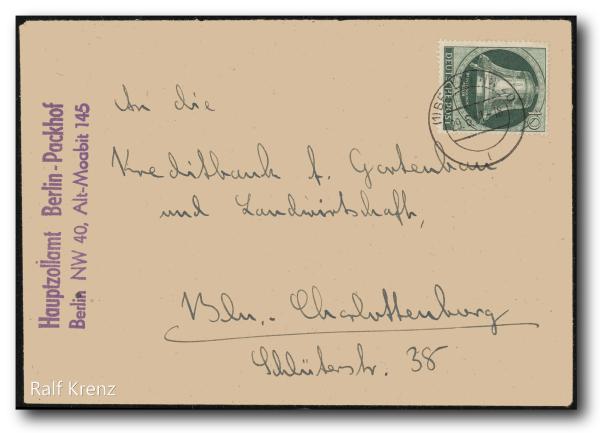 Hauptzollamt Berlin-Packhof
Berlin NW 40, Alt-Moabit 145
DEUTSCHE POST
10
An die
Kreditbank f. Gartenbau
und Landwirtschaft,
Bln.-Charlottenburg
Schlüterstr. 38
Ralf Krenz